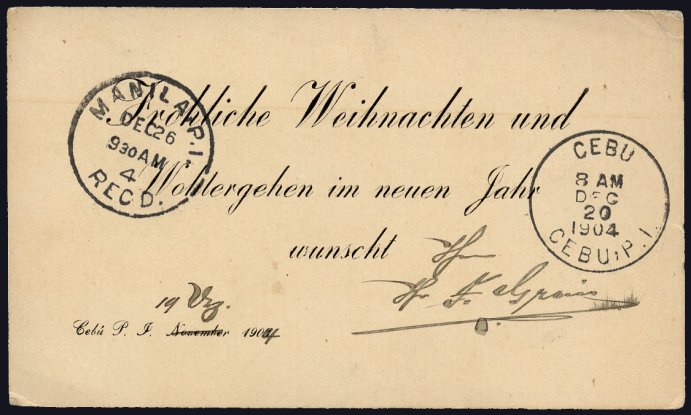 MANILA, P.I.
DEC 26
930 AM
4
REC'D.
Fröhliche Weihnachten und
Wohlergehen im neuen Jahr
wunscht
CEBU
8 AM
DEC
20
1904
CEBU, P.I.
19
Cebú P. I. November 1904